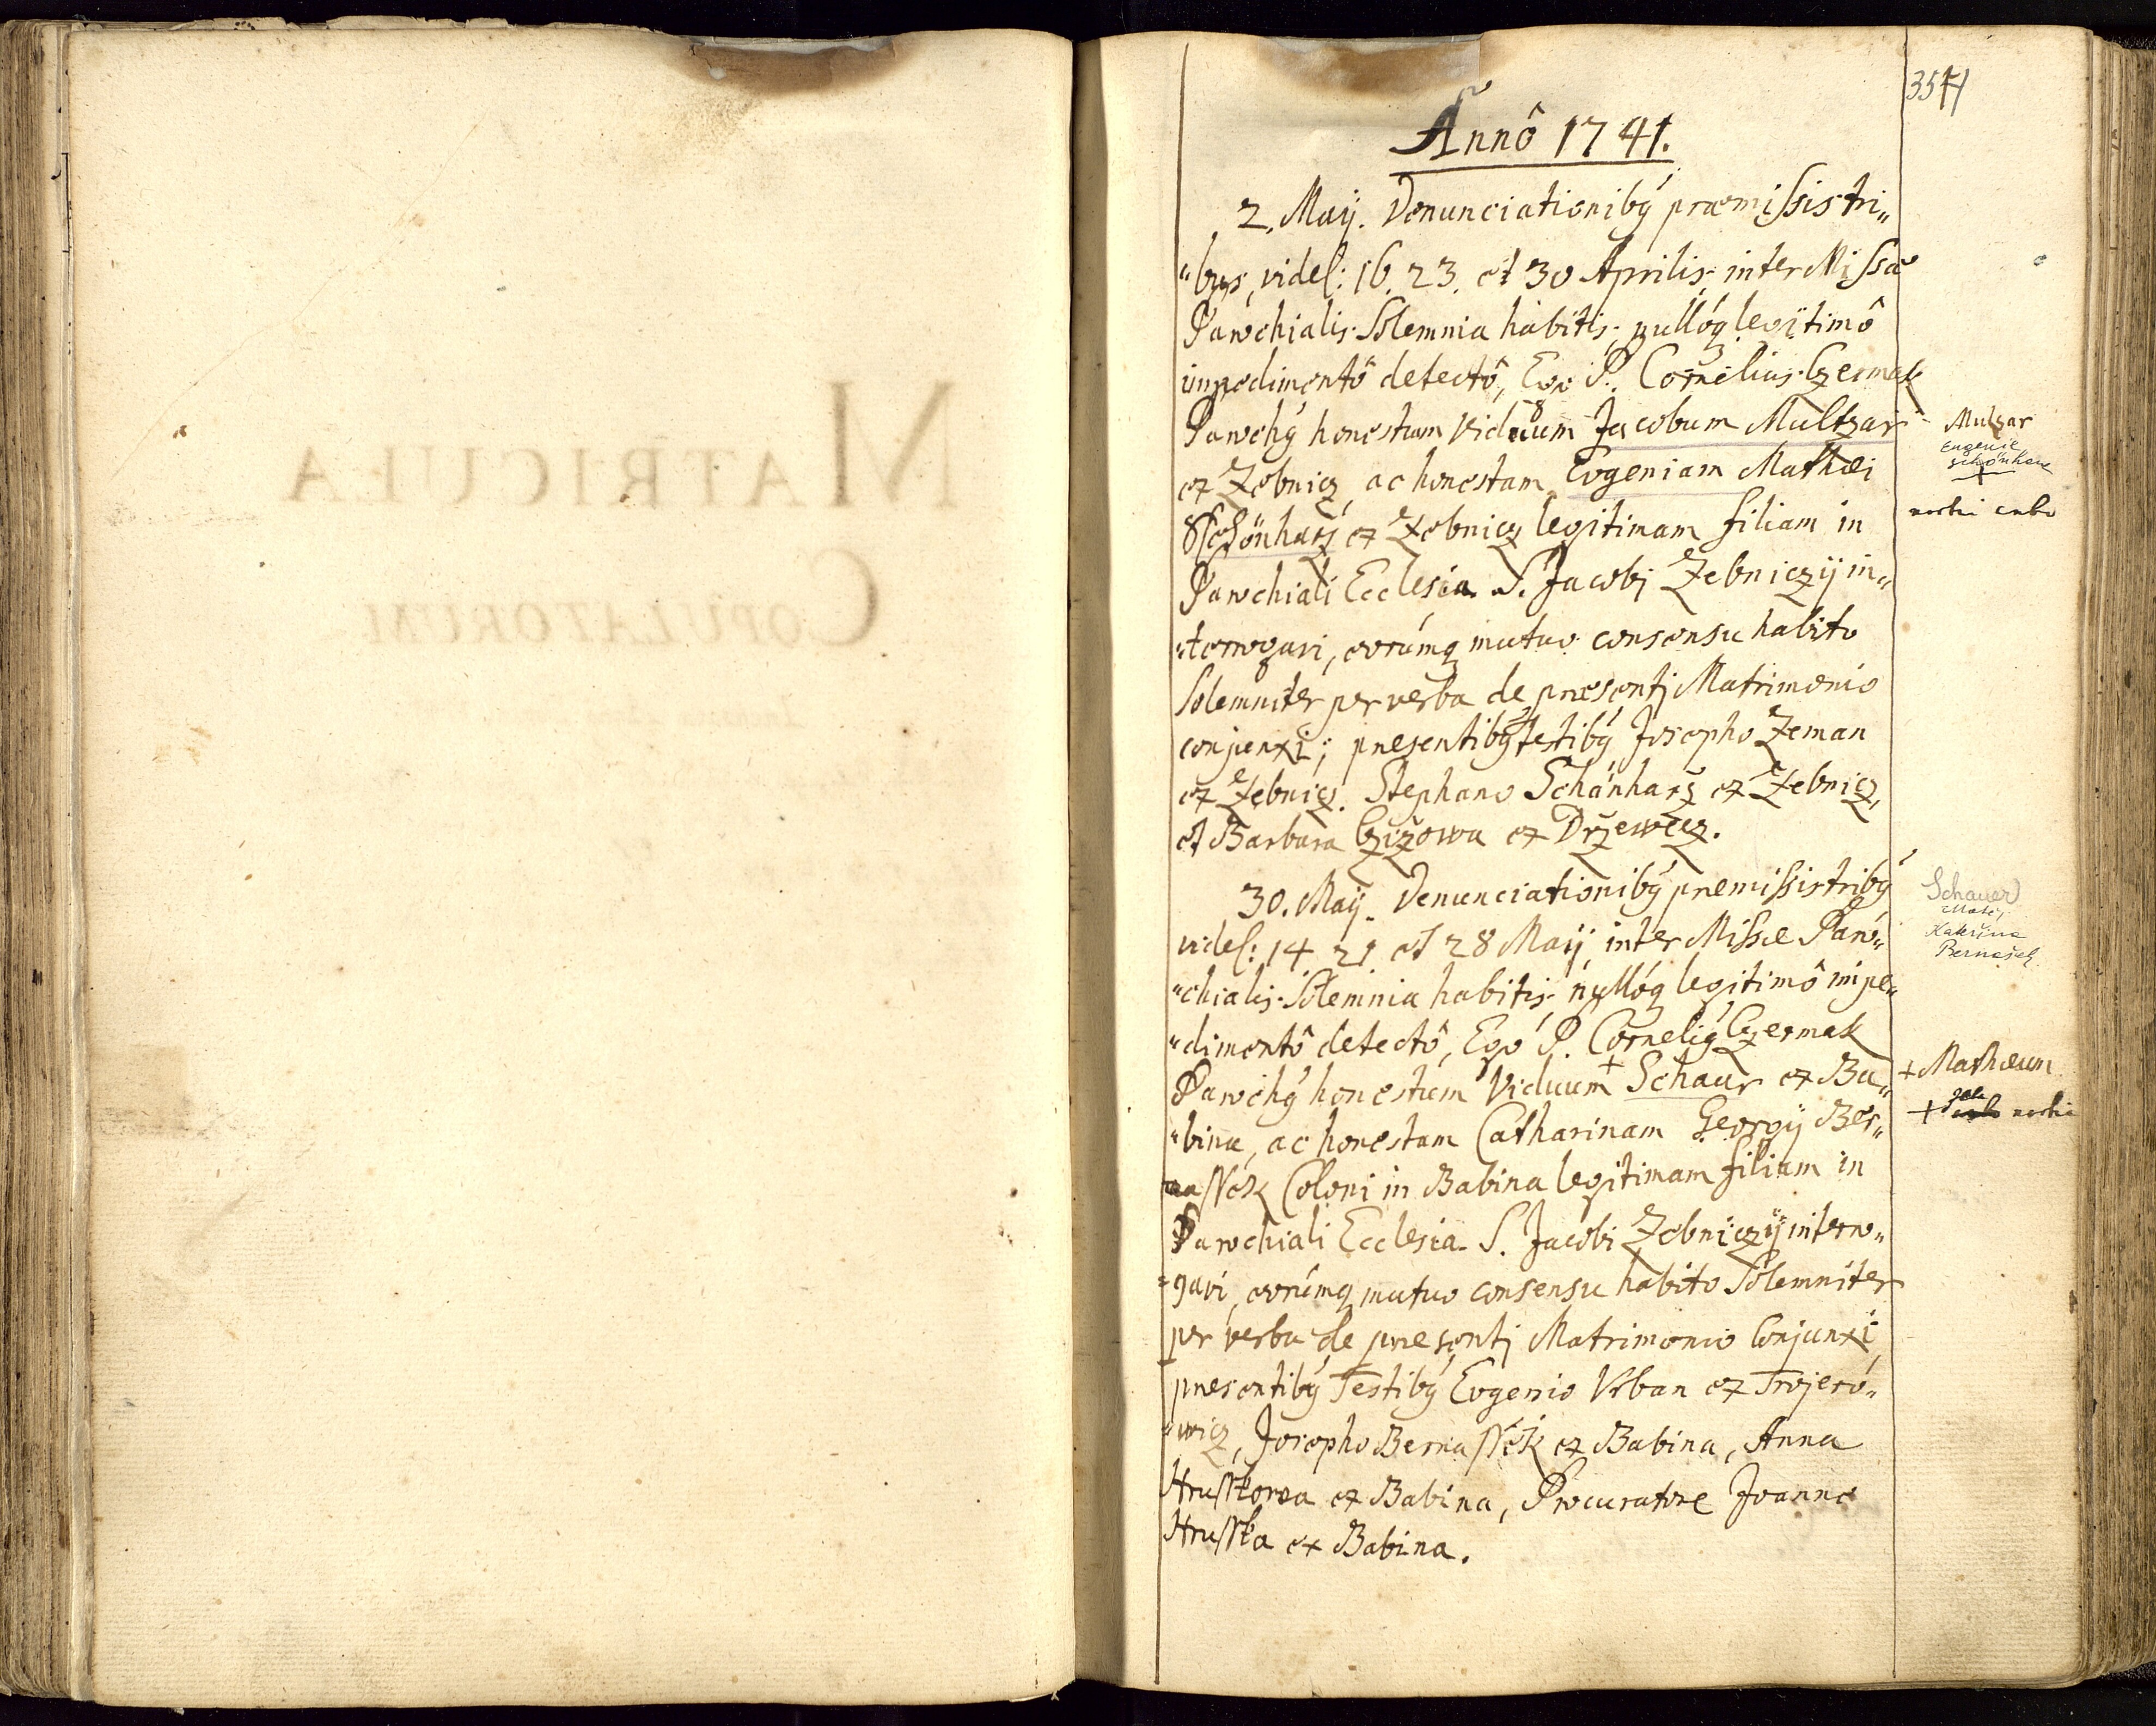 354
Annô 1741.
2. Maij. Denunciationibꝰ præmissis tri„
„bus, videl: 16. 23. et 30 Aprilis, inter Missæ
Parochialis Solemnia habitis, nullóq legitimô
impedimentô detectô, Ego P. Cornelius Czermak
Parochꝰ honestum Viduum Jacobum Multzar
ex Žebnicz, ac honestam Evgeniam Mathæi
Schönharz ex Žebnicz legitimam filiam in
Parochiali Ecclesia S. Jacobi Žebniczij in„
„terrogavi, eorúmq mutuo consensu habito
Solemniter per verba de præsentj Matrimonio
conjunxi; præsentibꝰ Testibꝰ Josepho Zeman
ex Žebnicz. Stephano Schönharz ex Žebnicz,
et Barbara Czižowa ex Držewecz.
Mulzar
Eugenie
30. Maij. Denunciationibꝰ præmissis tribꝰ
videl: 14 21 et 28 Maij, inter Missæ Paro„
„chialis Solemnia habitis, nullóq legitimô impe„
„dimentô detectô, Ego P. Corneliꝰ Czermak
Parochꝰ honestum Viduum + Schaur ex Ba„
„bina, ac honestam Catharinam Georgij Ber„
„nassek Coloni in Babina legitimam filiam in
Parochiali Ecclesia S. Jacobi Žebniczij interro„
„gavi, eorúmq mutuo consensu habito Solemniter
per verba de præsentj Matrimonio Conjunxi
præsentibꝰ Testibꝰ Evgenio Vrban ex Trojero„
„wicz, Josepho Bernassek ex Babina, Anna
Hrusskowa ex Babina, Procuratore Joanne
Hrusska ex Babina.
Schauer
Matěj
Kateřina
Bernašek
+ Mathæum
MATRICULA
COPULATORUM